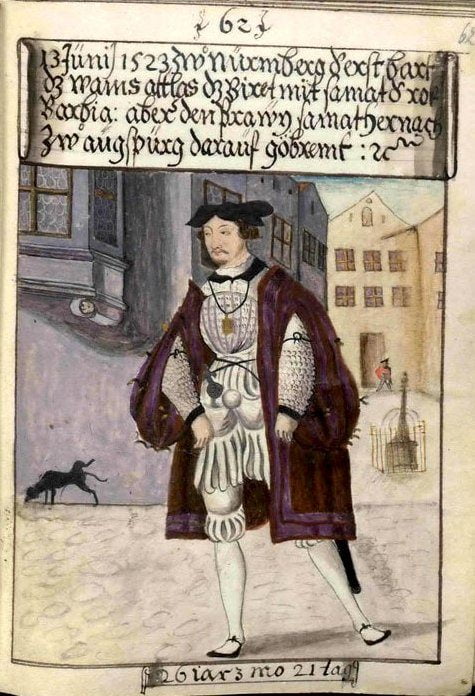 62
13 Jünij 1523 zwo Nürmberg d'erst bart
dz wams attlas dz Biret mit samat d' rok
Barhia: aber den Brawn samat hernach
Zw augspürg darauf göbremt : ꝛc
26 iar 3 mo 21 tag